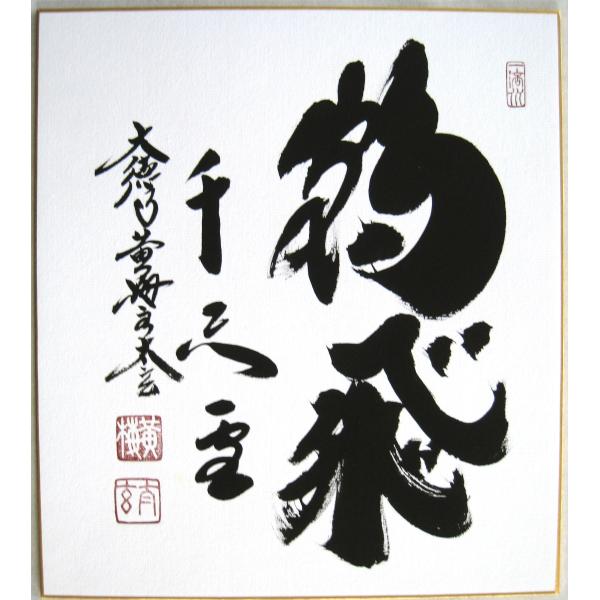 鶴飛
千尺雪
大徳寺黄梅主太玄
黄梅